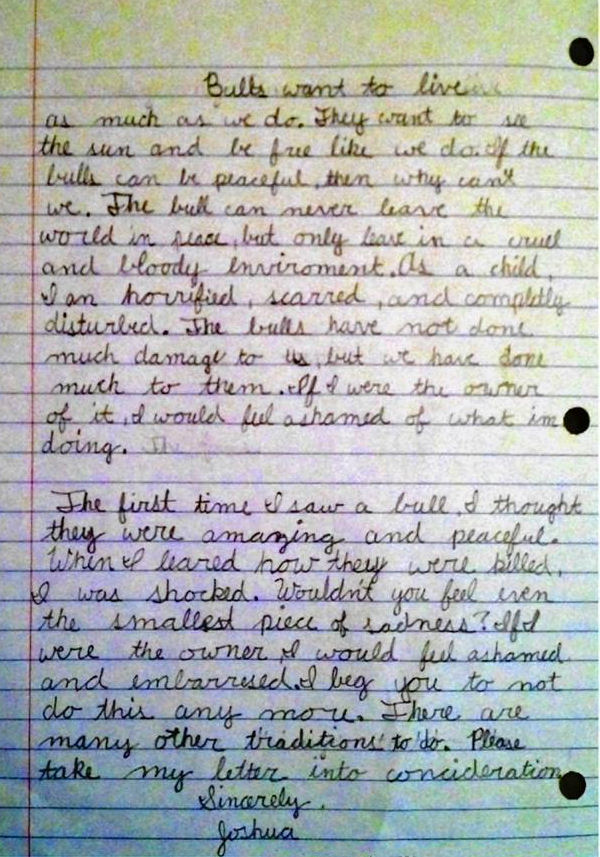 Bulls want to live
as much as we do. They want to see
the sun and be free like we do. If the
bulls can be peaceful, then why can't
we. The bull can never leave the
world in peace, but only leave in a cruel
and bloody enviroment. As a child,
I an horrified, scarred, and completly
disturbed. The bulls have not done
much damage to us, but we have done
much to them. If I were the owner
of it, I would feel ashamed of what im
doing.
The first time I saw a bull, I thought
they were amazing and peaceful.
When I leared how they were killed,
I was shocked. Wouldn't you feel even
the smallest piece of sadness? If I
were the owner, I would feel ashamed
and embarresed. I beg you to not
do this any more. There are
many other traditions to do. Please
take my letter into concideration
Sincerely,
Joshua